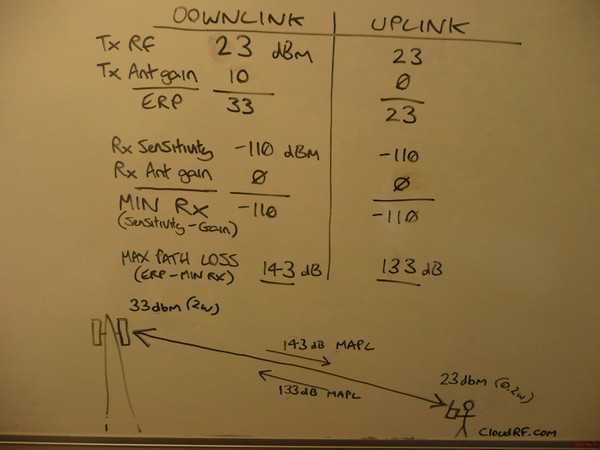 DOWNLINK UPLINK
Tx RF 23 dBm 23
Tx Ant gain 10 0
ERP 33 23
Rx Sensitivity -110 dBm -110
Rx Ant gain 0 0
MIN Rx -110 -110
(Sensitivity-Gain)
MAX PATH LOSS 143 dB 133 dB
(ERP-MIN RX)
33dbm (2w)
143 dB MAPL
133 dB MAPL
23dbm (0.2w)
CloudRF.com